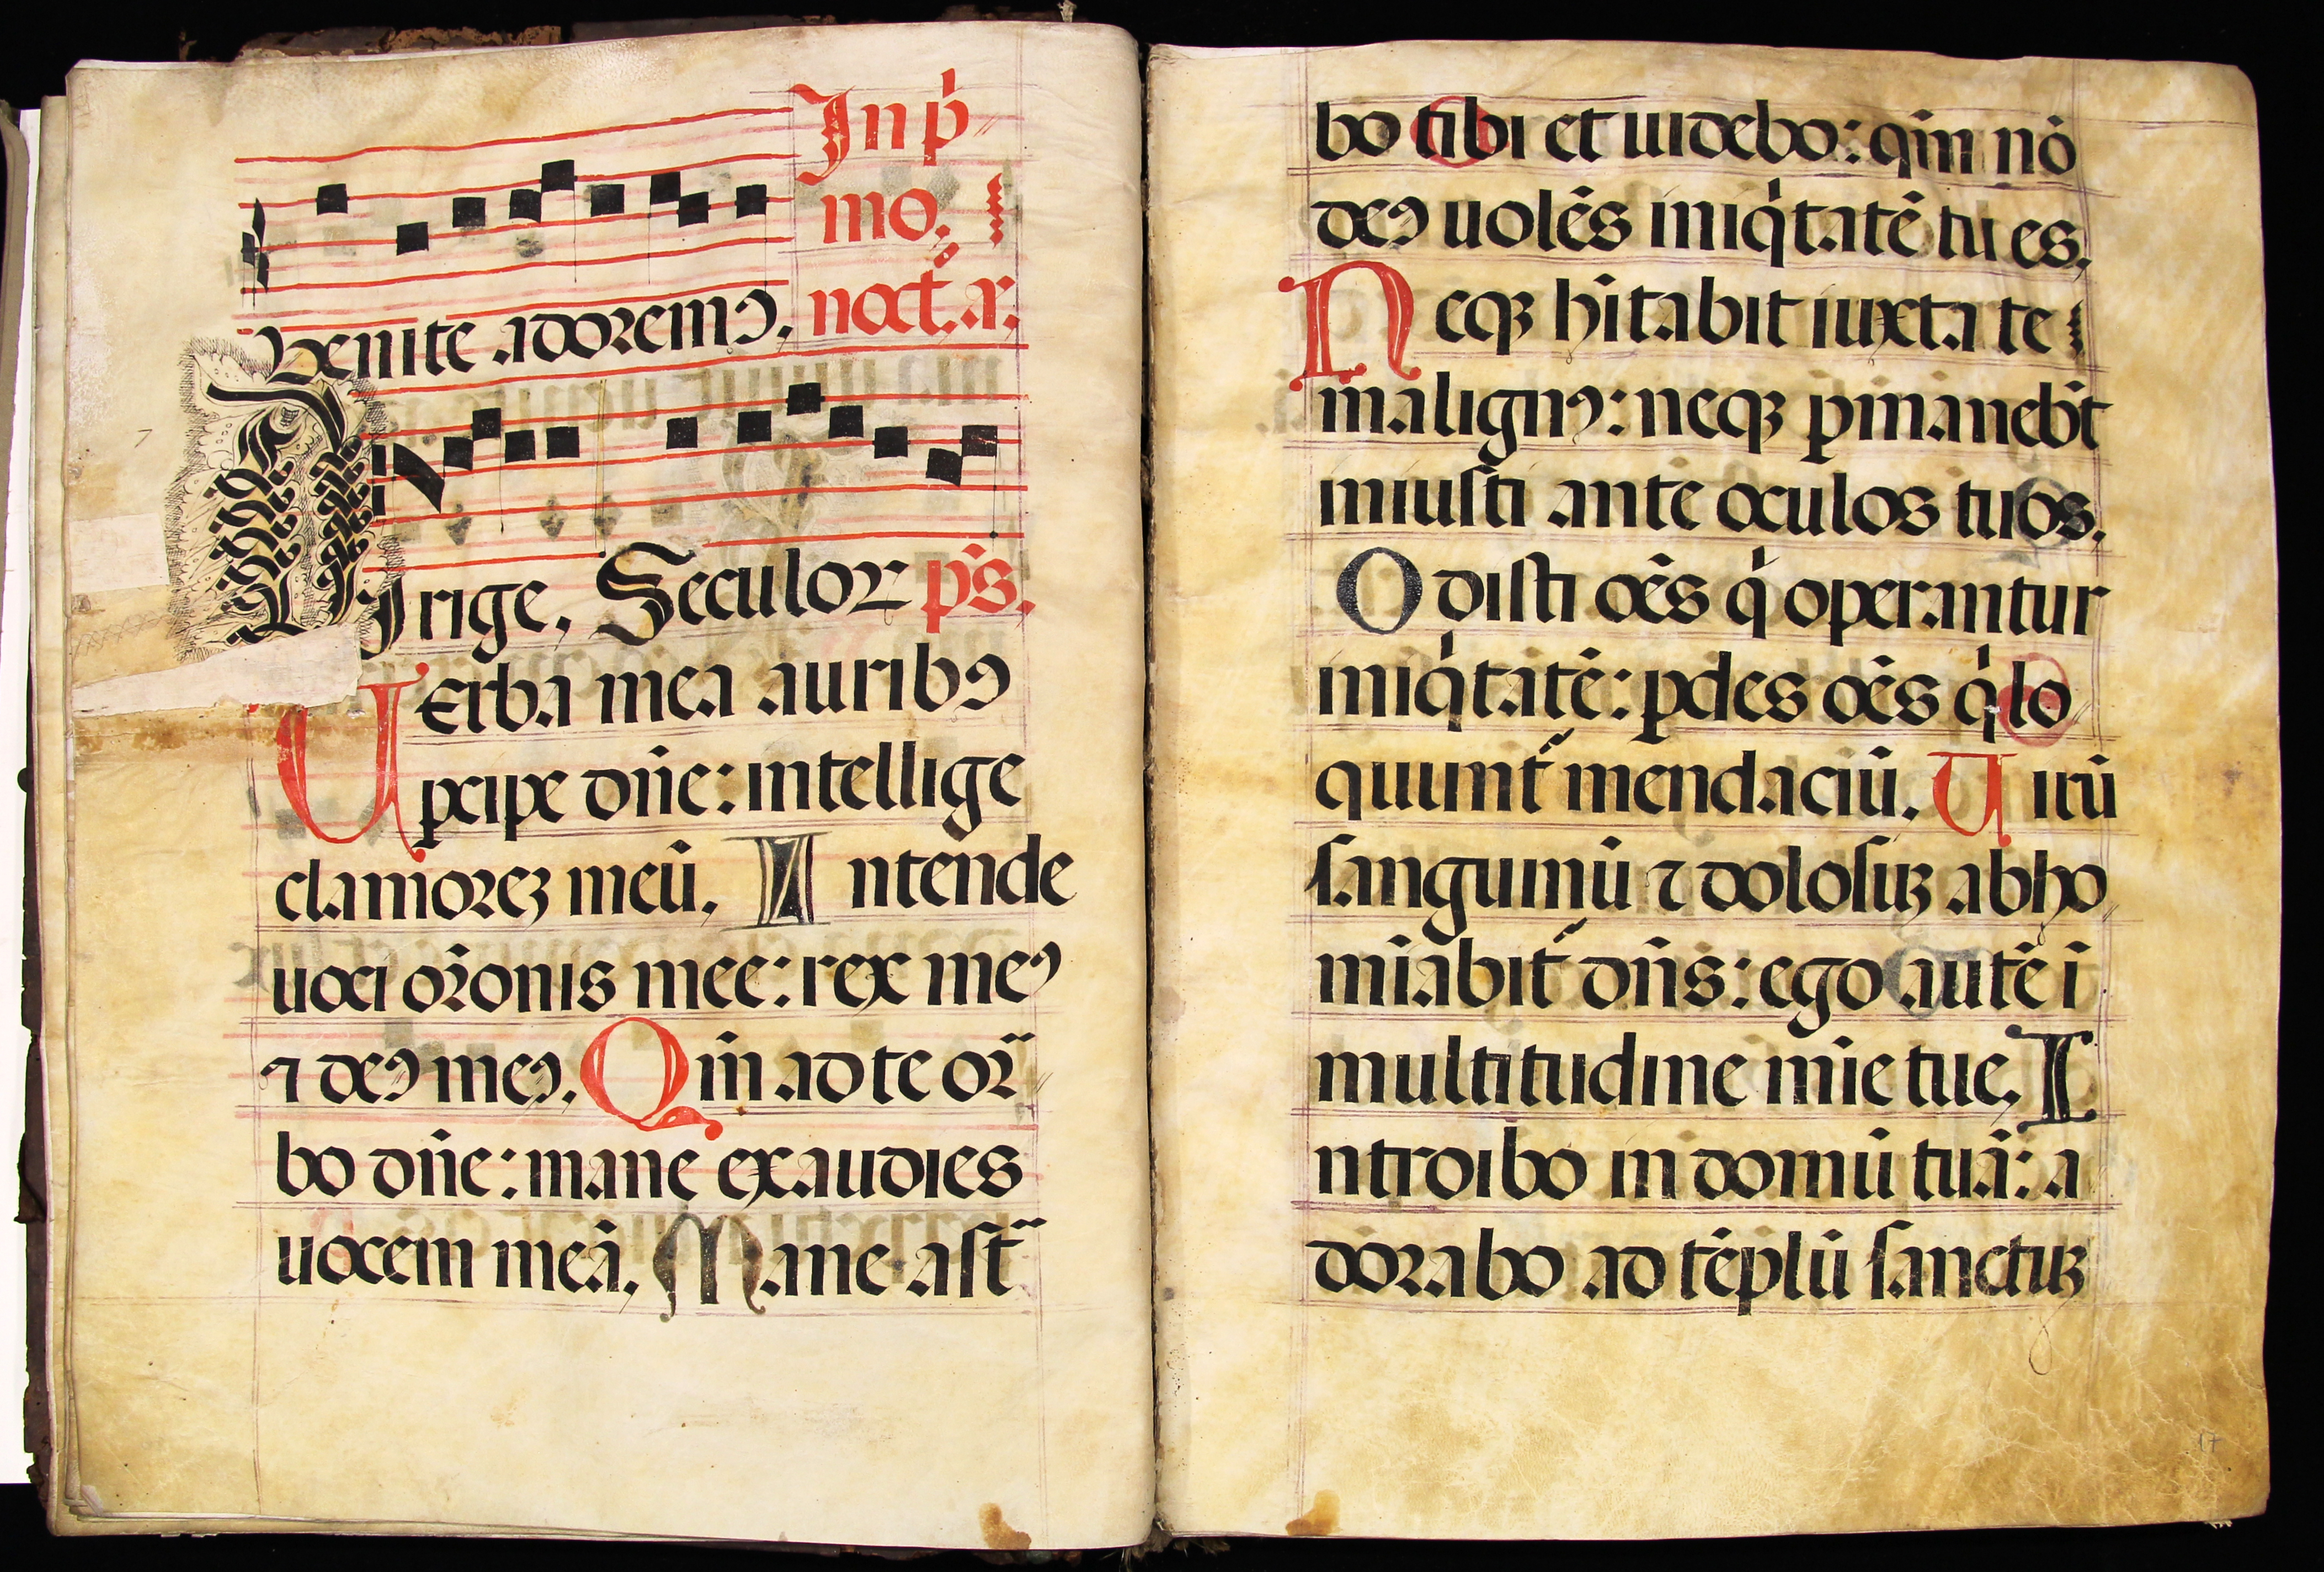 In p̉
mo.
Venite adoremꝯ. noct̉. añ.
Dirige. Seculoꝝ p̄s.
UErba mea auribꝯ
ꝑcipe dn̄e: intellige
clamoreꝫ meū. Intende
uoci or̄onis mee: rex meꝯ
⁊ deꝯ meꝯ. Qm̄ ad te or̄
bo dn̄e: mane exaudies
uocem meā. Mane ast̄
bo tibi et uidebo: qm̄ nō
deꝯ uolēs iniq̉tatē tu es.
Neqꝫ hītabit iuxta te
malignꝯ: neqꝫ ꝑmanebt̄
iniusti ante oculos tuos.
Odisti oēs q̉ operantur
iniq̉tatē: ꝑdes oēs q̉ lo
quunt̉ mendaciū. Uirū
sanguinū ⁊ dolosuꝫ abho
mīabit̉ dn̄s: ego autē ī
multitudine mīe tue. I
ntroibo in domū tuā: a
dorabo ad tēplū sanctuꝫ
17